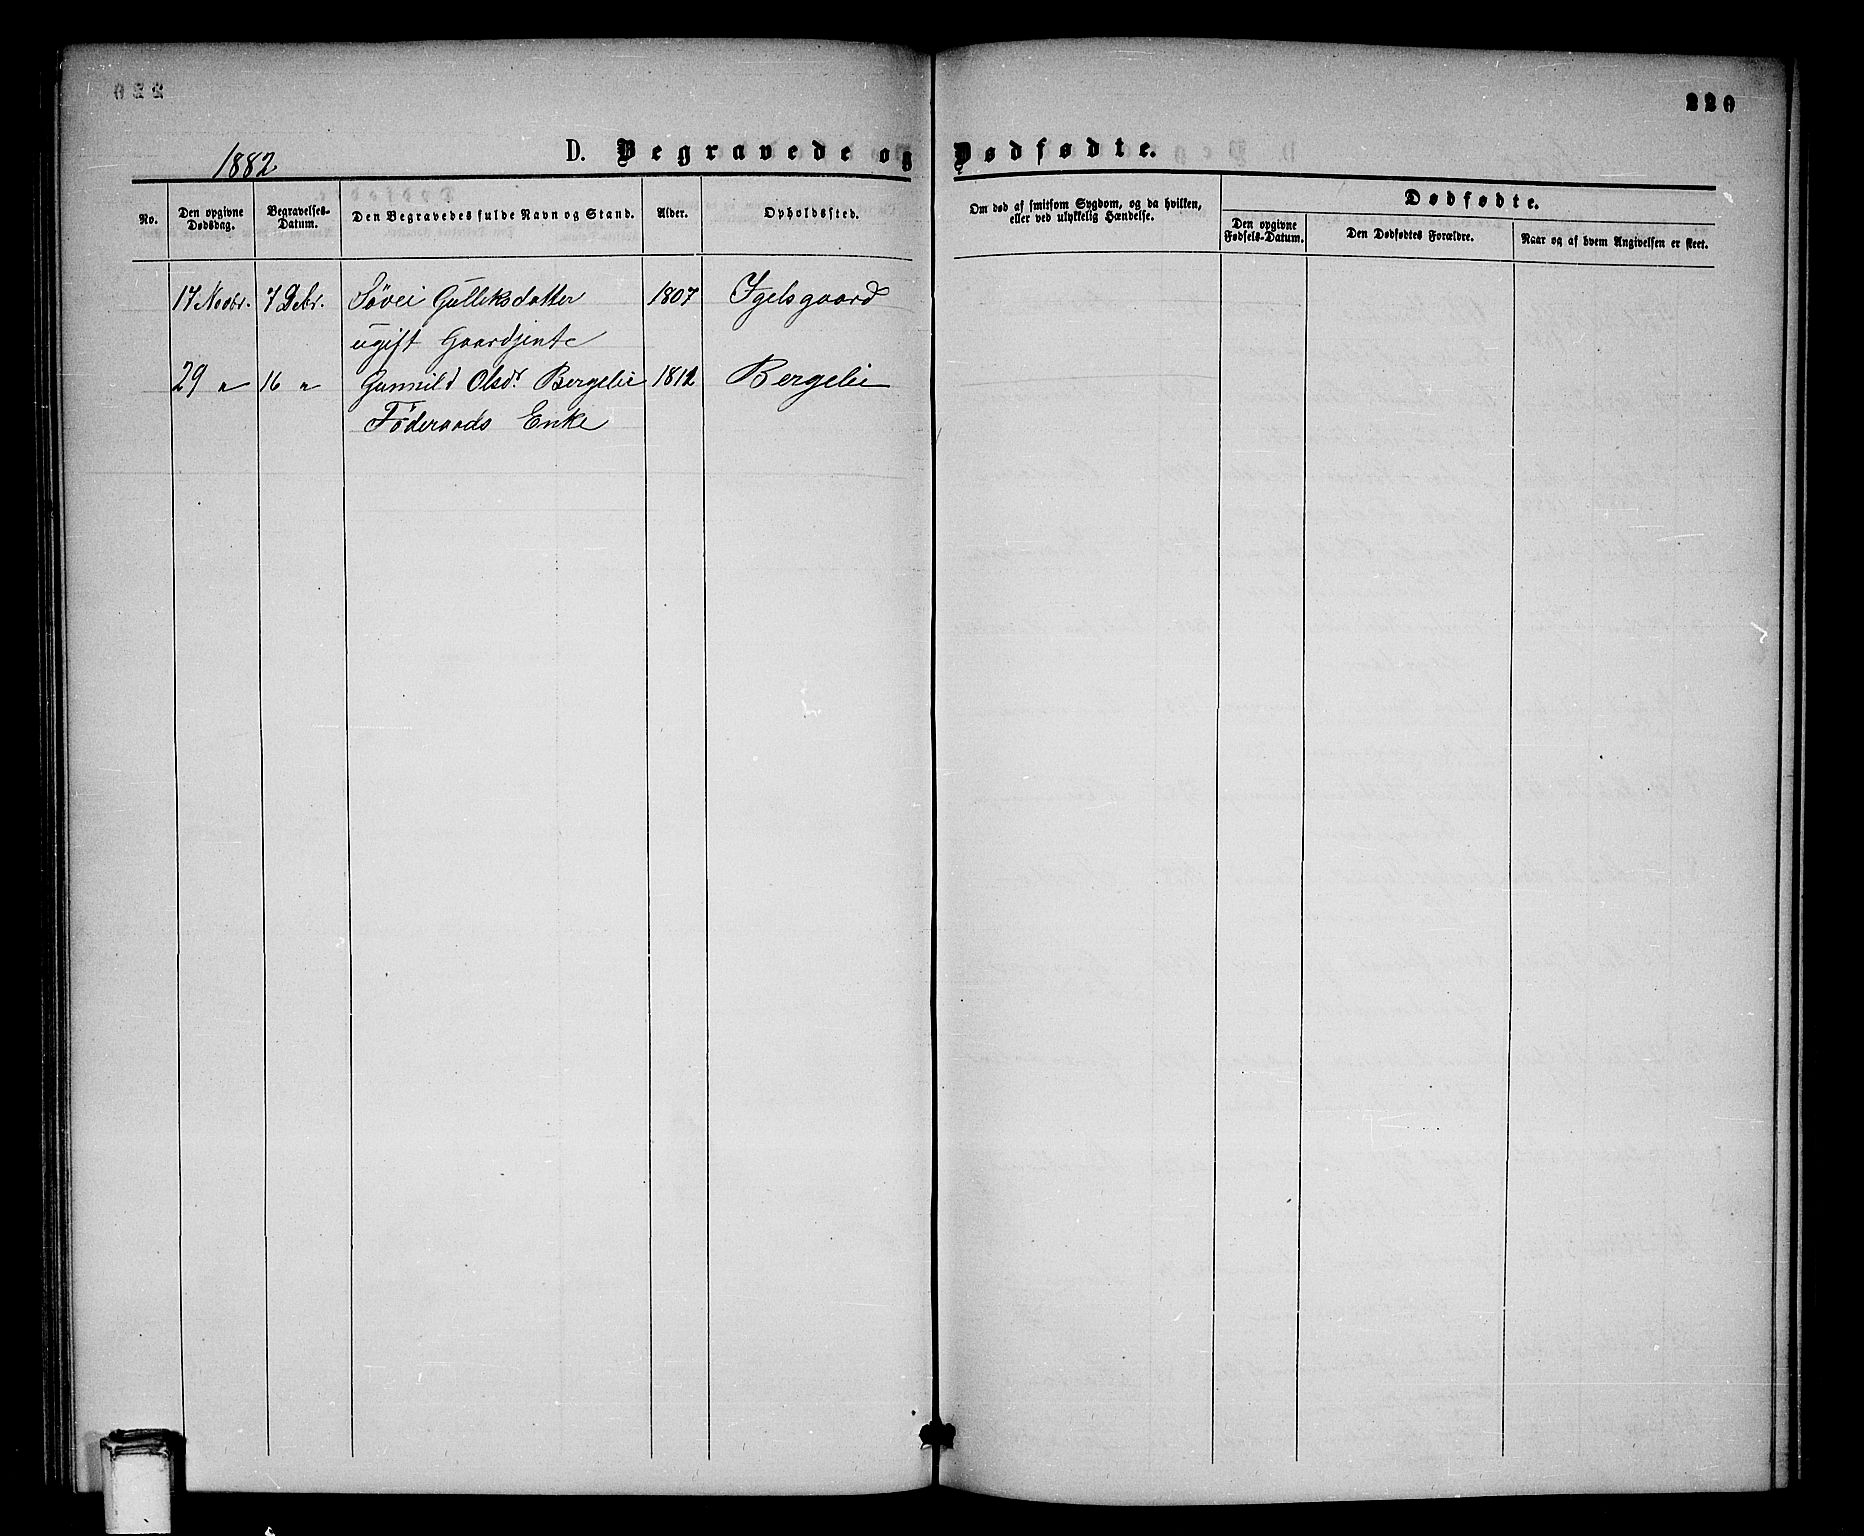 220
1882
D. Begravede og Dødfødte.
No.
Den opgivne Dødsdag.
Begravelses-Datum.
Den Begravedes fulde Navn og Stand.
Alder.
Opholdssted.
Om død af smitsom Sygdom, og da hvilken, eller ved ulykkelig Hændelse.
Dødfødte.
Den opgivne Fødsels-Datum.
Den Dødfødtes Forældre.
Naar og af hvem Angivelsen er skeet.
17 Novbr. 7 Debr. Søvei Gulleksdatter 1807 Igelsgaard
ugift Gaardjente
29 " 16 " Gunnild Olsdr Bergelie 1812 Bergelie
Föderaads Enke